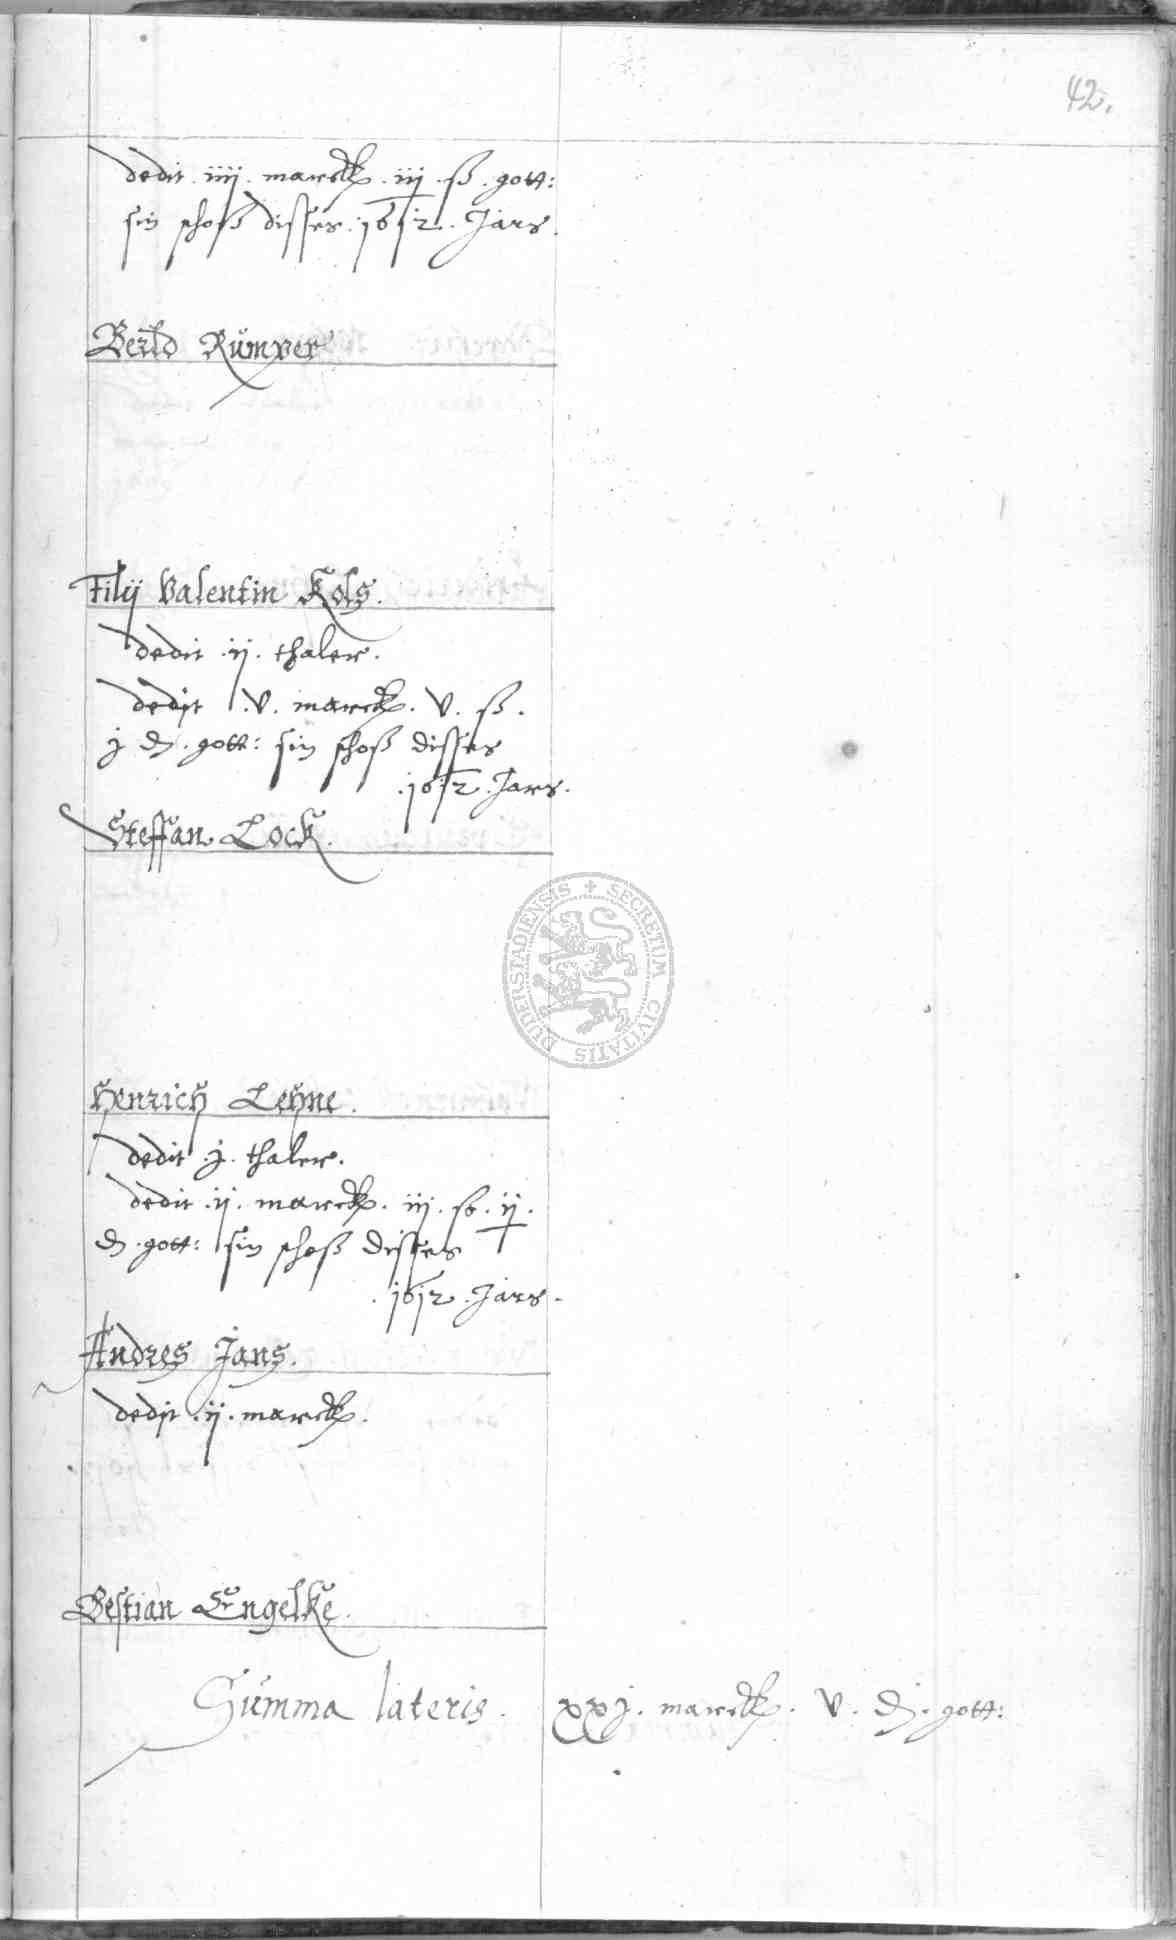 42.
dedit . iiij . marck . iij . ß . gott:
sin schoß disses . 1612 . Jars .
Bertld Rümper
Filij Valentin Kols .
dedit . ij . thaler .
dedit . v . marck . v . ß .
j d . gott: sin schoß disses
. 1612 . Jars .
Steffan Lock .
SECRETUM CIVITATIS DUDERSTADIENSIS
Henrich Lehne .
dedit . j . thaler .
dedit . ij . marck . iij . ß . ij .
d . gott: sin schoß disses
. 1612 . Jars .
Andres Jans .
dedit . ij . marck .
Bestian Engelke .
Summa lateris . xxj . marck . v . d . gott: